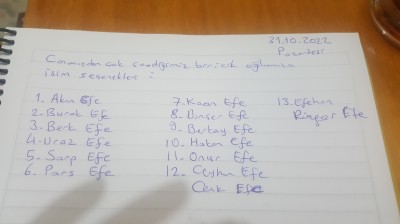 31.10.2022
Pazartesi
Canımızdan çok sevdiğimiz biricik oğlumuza
isim seçenekleri :
1. Akın Efe
2. Burak Efe
3. Berk Efe
4. Uraz Efe
5. Sarp Efe
6. Pars Efe
7. Kaan Efe
8. Dinçer Efe
9. Berkay Efe
10. Hakan Efe
11. Onur Efe
12. Ceyhun Efe
Cenk Efe
13. Efehan
Rüzgar Efe